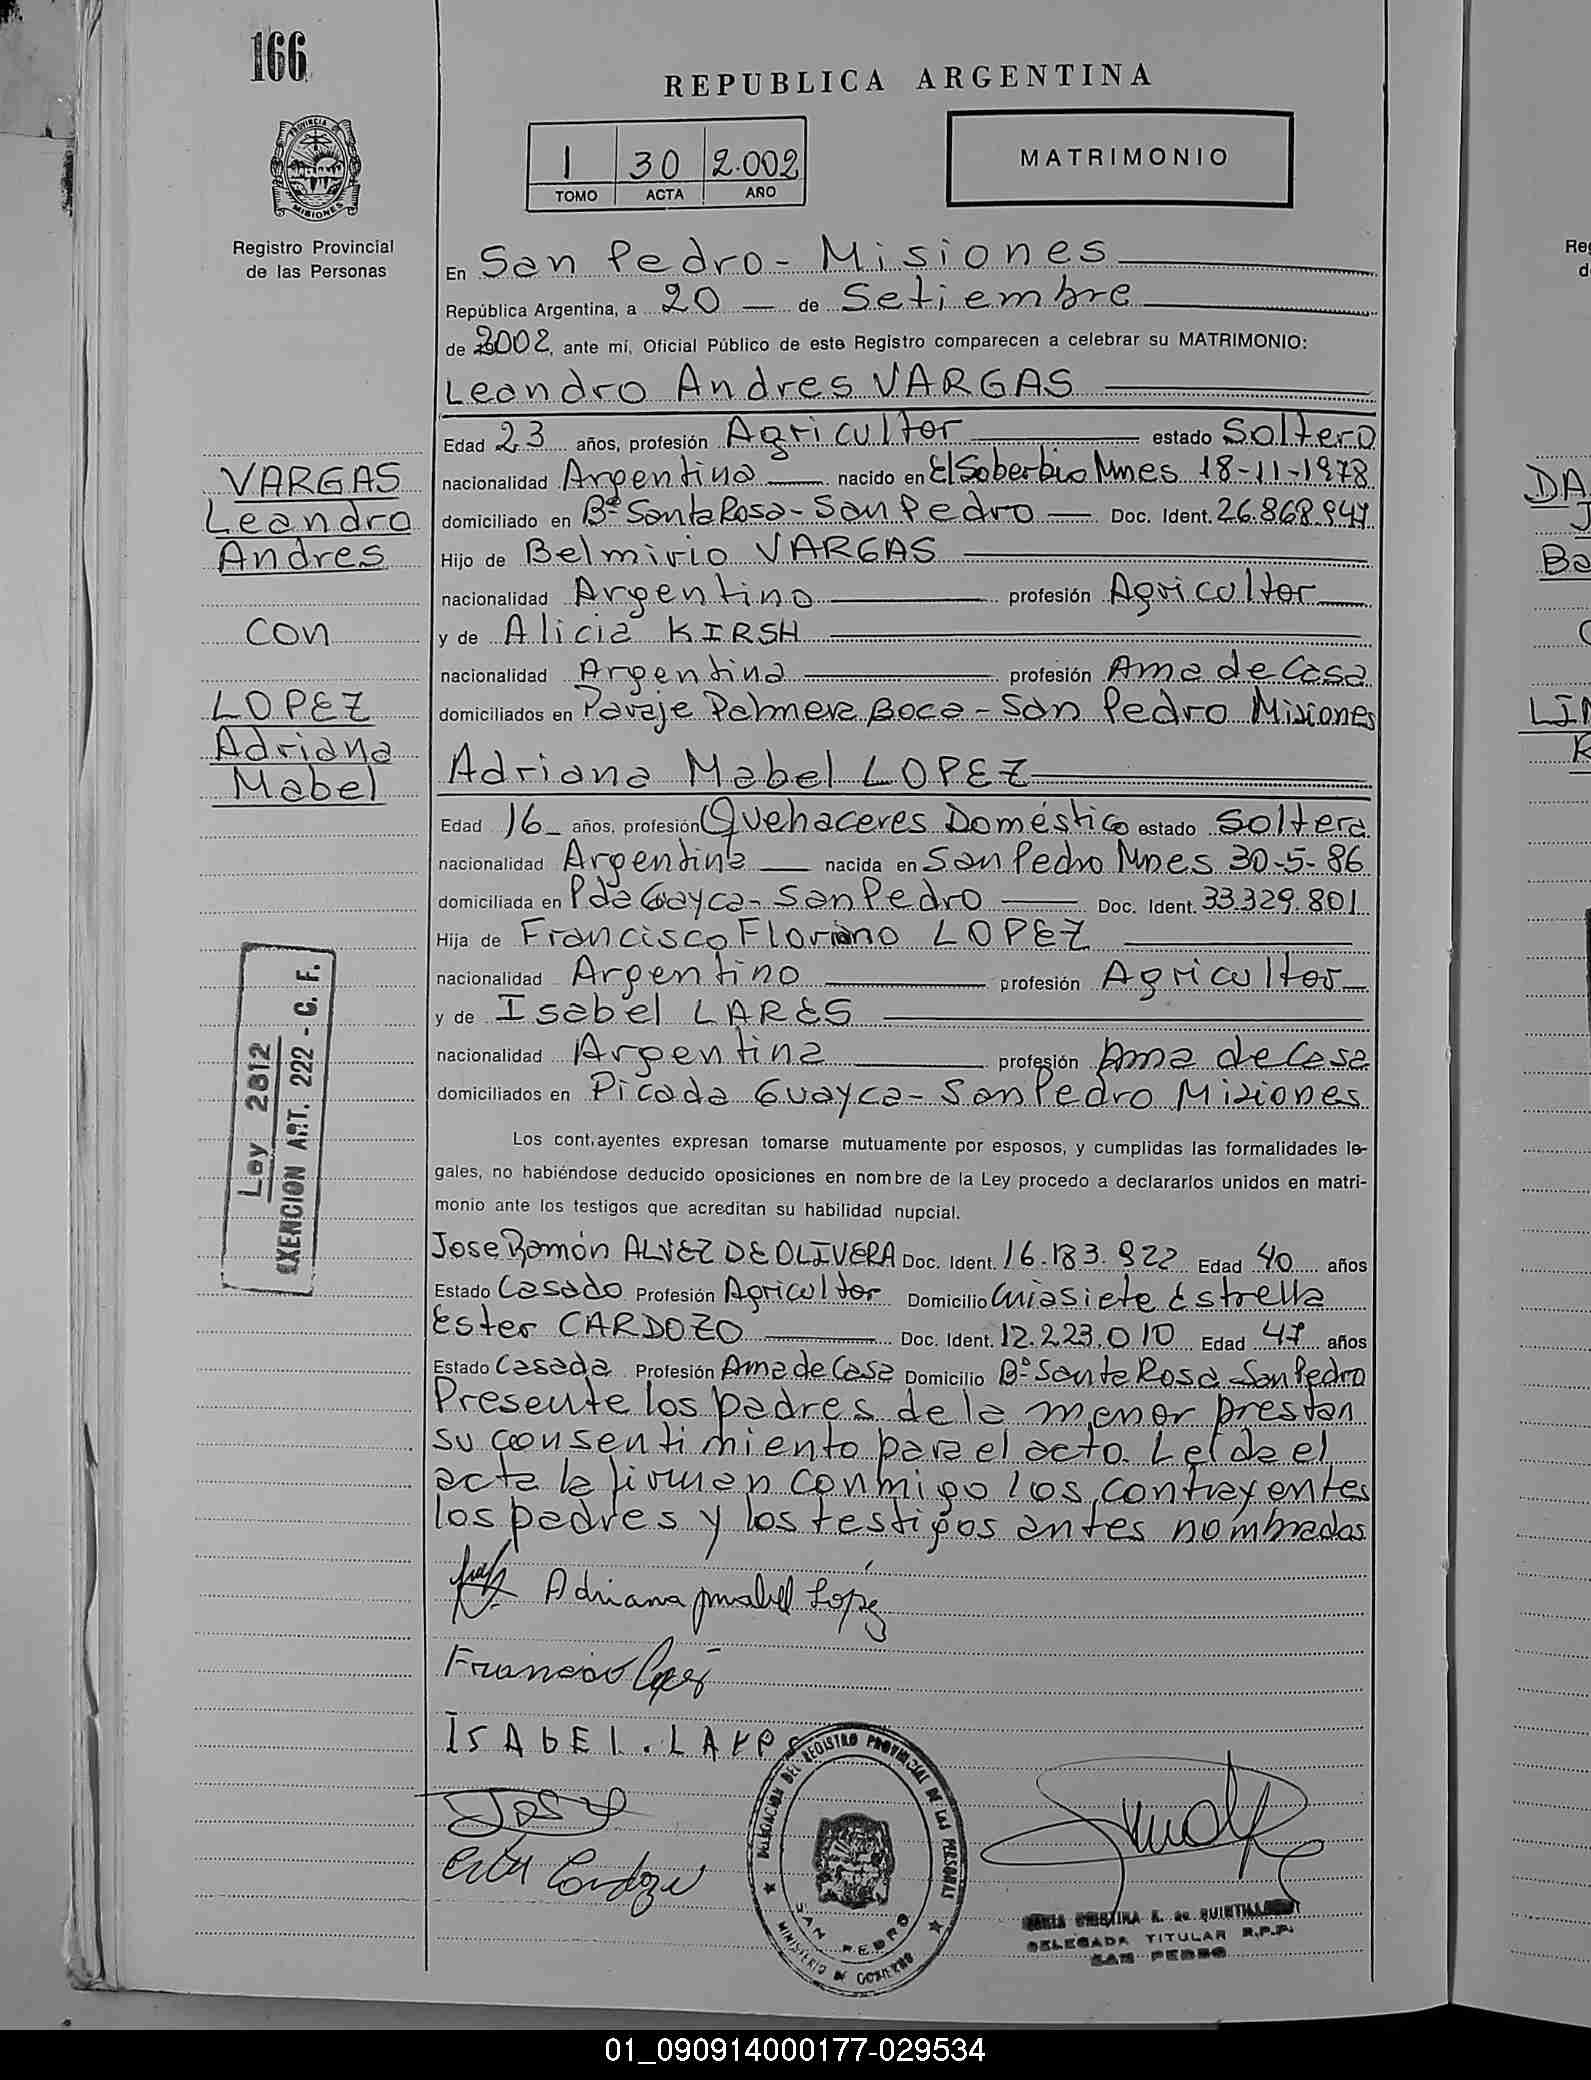 166
REPUBLICA ARGENTINA
PROVINCIA DE MISIONES
1 30 2.002
TOMO ACTA AÑO
MATRIMONIO
Registro Provincial
de las Personas
En San Pedro - Misiones
República Argentina, a 20 — de Setiembre
de 2002, ante mí, Oficial Público de este Registro comparecen a celebrar su MATRIMONIO:
Leandro Andres VARGAS
Edad 23 años, profesión Agricultor estado Soltero
nacionalidad Argentina nacido en El Soberbio Mnes 18-11-1978
domiciliado en Bº Santa Rosa - San Pedro — Doc. Ident. 26.868.947
Hijo de Belmirio VARGAS
nacionalidad Argentino profesión Agricultor
y de Alicia KIRSH
nacionalidad Argentina profesión Ama de Casa
domiciliados en Paraje Palmera Boca - San Pedro Misiones
Adriana Mabel LOPEZ
Edad 16 años, profesión Quehaceres Doméstico estado Soltera
nacionalidad Argentina nacida en San Pedro Mnes 30-5-86
domiciliada en Pda Guayca - San Pedro — Doc. Ident. 33.329.801
Hija de Francisco Floriano LOPEZ
nacionalidad Argentino profesión Agricultor
y de Isabel LARES
nacionalidad Argentina profesión Ama de Casa
domiciliados en Picada Guayca - San Pedro Misiones
Los cont,ayentes expresan tomarse mutuamente por esposos, y cumplidas las formalidades le-
gales, no habiéndose deducido oposiciones en nombre de la Ley procedo a declararlos unidos en matri-
monio ante los testigos que acreditan su habilidad nupcial.
Jose Ramón ALVEZ DE OLIVERA Doc. Ident. 16.183.922 Edad 40 años
Estado Casado Profesión Agricultor Domicilio Siete Estrella
Ester CARDOZO Doc. Ident. 12.223.010 Edad 47 años
Estado Casada Profesión Ama de Casa Domicilio Bº Santa Rosa San Pedro
Presente los padres de la menor prestan
su consentimiento para el acto. Leída el
acta la firman conmigo los contrayentes
los padres y los testigos antes nombrados
Adriana mabel Lopez
Francisco Lopez
ISABEL. LARES
José
Ester Cardozo
VARGAS
Leandro
Andres
con
LOPEZ
Adriana
Mabel
Ley 2812
EXENCION ART. 222 - C. F.
DELEGACION DEL REGISTRO PROVINCIAL DE LAS PERSONAS
SAN PEDRO
MINISTERIO DE GOBIERNO
CRISTINA
DELEGADA TITULAR R.P.P.
SAN PEDRO
Re
d
DA
J
Ba
LIN
01_090914000177-029534